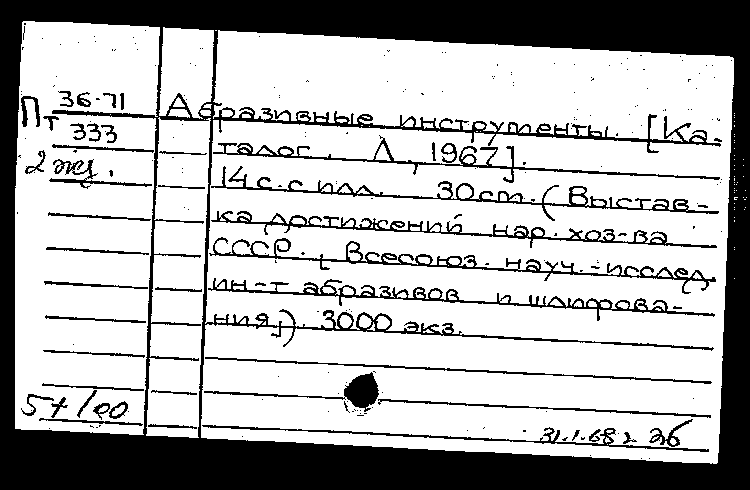 Пт 36-71
333
2 экз.
Абразивные инструменты. [Ка-
талог. Л., 1967].
14 с. с илл. 30 cm. (Выстав-
ка достижений нар. хоз-ва
СССР. [Всесоюз. науч.-исслед.
ин-т абразивов и шлифова-
ния]). 3000 экз.
31.1.68 г.